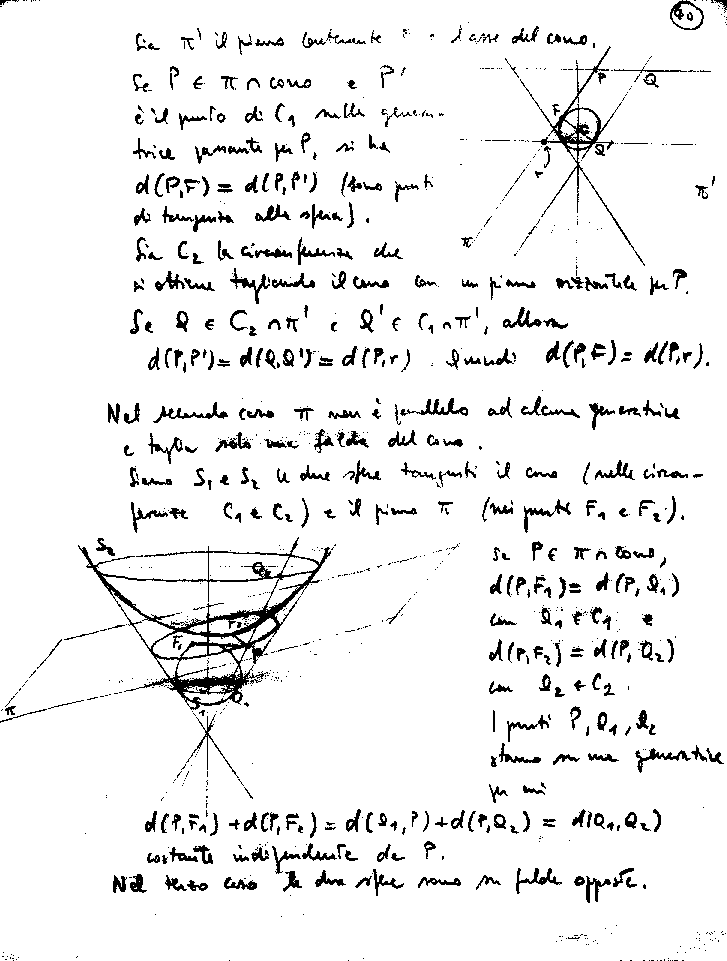 40
Sia π' il piano contenente l'asse del cono.
Se P ∈ π ∩ cono e P'
è il punto di C₁ sulla genera-
trice passante per P, si ha
d(P,F) = d(P,P') (sono punti
di tangenza alla sfera).
Sia C₂ la circonferenza che
si ottiene tagliando il cono con un piano orizzontale per P.
Se Q ∈ C₂ ∩ π' e Q' ∈ C₁ ∩ π', allora
d(P,P') = d(Q,Q') = d(P,r). Quindi d(P,F) = d(P,r).
P
Q
F
Q'
r
π
π'
Nel secondo caso π non è parallelo ad alcuna generatrice
e taglia solo una falda del cono.
Siano S₁ e S₂ le due sfere tangenti il cono (nelle circon-
ferenze C₁ e C₂) e il piano π (nei punti F₁ e F₂).
Se P ∈ π ∩ cono,
d(P,F₁) = d(P,Q₁)
con Q₁ ∈ C₁ e
d(P,F₂) = d(P,Q₂)
con Q₂ ∈ C₂.
I punti P, Q₁, Q₂
stanno su una generatrice
per cui
S₂
Q₂
F₂
F₁
P
S₁
Q₁
π
d(P,F₁) + d(P,F₂) = d(Q₁,P) + d(P,Q₂) = d(Q₁,Q₂)
costante indipendente da P.
Nel terzo caso le due sfere sono su falde opposte.